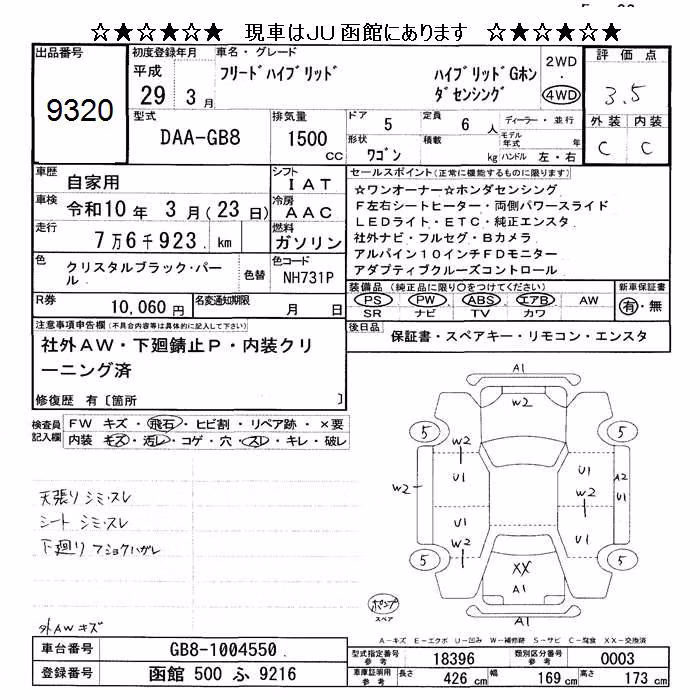 ☆★☆★☆★ 現車はJU函館にあります ☆★☆★☆★
出品番号
9320
初度登録年月
平成
29 3 月
車名・グレード
フリードハイブリッド
ハイブリッドGホン
ダセンシング
2WD
・
4WD
評価点
3.5
外装 内装
C C
型式
DAA-GB8
排気量
1500
CC
ドア 5
形状 ワゴン
定員 6 人
積載 kg
ディーラー・並行
モデル
年式 年
ハンドル 左・右
車歴 自家用
シフト IAT
車検 令和10年 3月(23日)
冷房 AAC
走行 7万6千923. km
燃料 ガソリン
色 クリスタルブラック・パー
ル
色替
色コード
NH731P
R券 10,060円
名変通知期限
月 日
セールスポイント(正常に機能するものに限ります)
☆ワンオーナー☆ホンダセンシング
F左右シートヒーター・両側パワースライド
LEDライト・ETC・純正エンスタ
社外ナビ・フルセグ・Bカメラ
アルパイン10インチFDモニター
アダプティブクルーズコントロール
装備品(純正品に限り○をつけてください)
PS PW ABS エアB AW
SR ナビ TV カワ
新車保証書
有・無
後日品
保証書・スペアキー・リモコン・エンスタ
注意事項申告欄(不具合内容等は具体的に記入して下さい)
社外AW・下廻錆止P・内装クリ
ーニング済
修復歴 有〔箇所 〕
検査員
記入欄
FW キズ・飛石・ヒビ割・リペア跡・×要
内装 キズ・汚レ・コゲ・穴・スレ・キレ・破レ
天張りシミ・スレ
シート シミ・スレ
下廻り フショクハガレ
外AWキズ
A1
W2
5
5
W2
U1
U1
A2
U1
W2
W2
U1
W2
U1
5
5
XX
A1
A1
ポンプ
スペア
A-キズ E-エクボ U-凹み W-補修跡 S-サビ C-腐食 XX-交換済
車台番号
GB8-1004550
登録番号
函館 500 ふ 9216
型式指定番号
参考
18396
類別区分番号
参考
0003
車庫証明用
参考
長さ 426 cm
幅 169 cm
高さ 173 cm